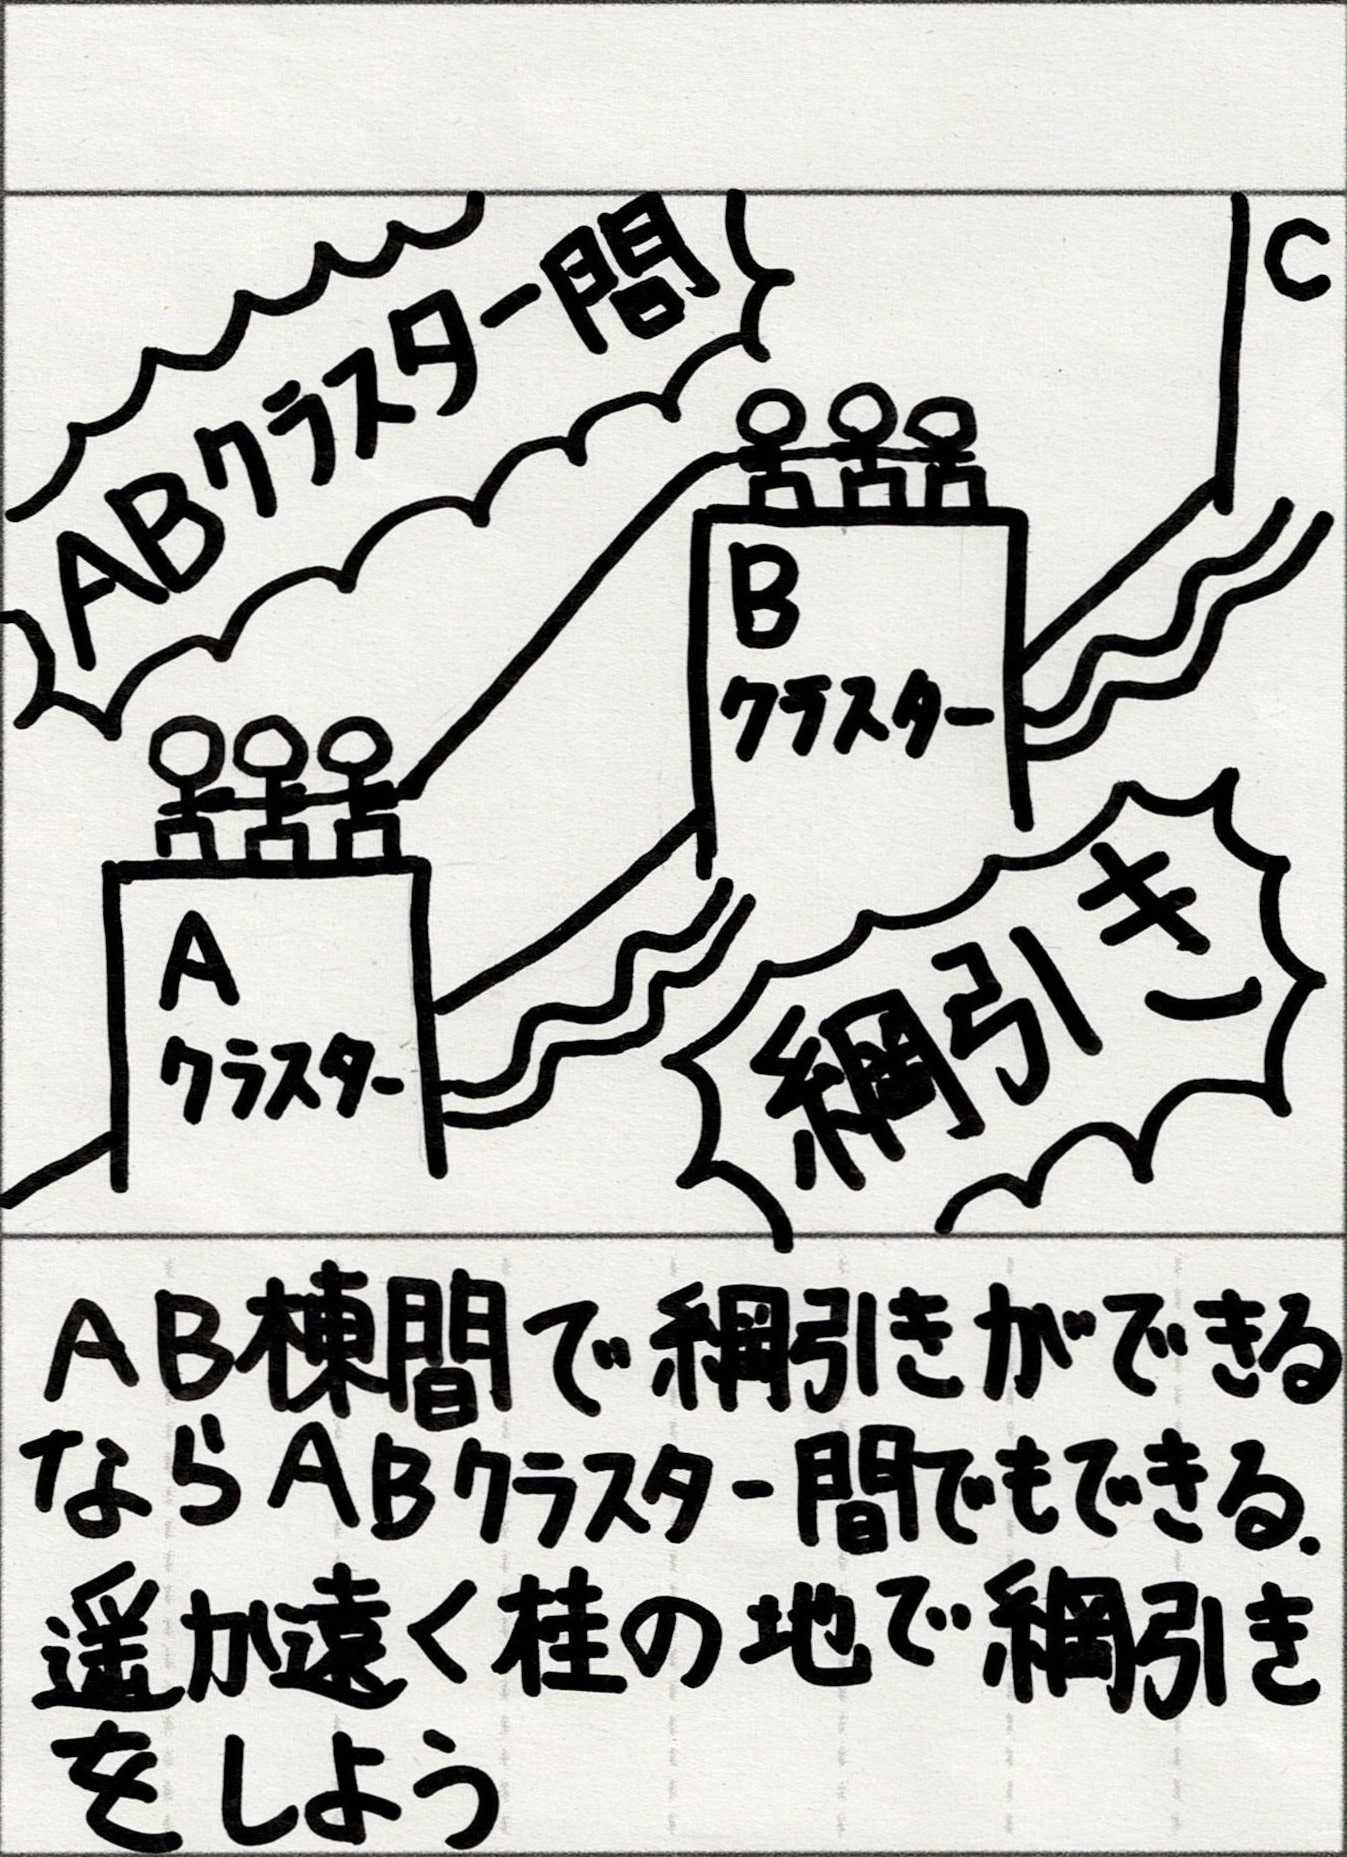 ABクラスター間
C
B
クラスター
A
クラスター
綱引きー
AB棟間で綱引きができる
ならABクラスター間でもできる.
遥か遠く桂の地で綱引き
をしよう